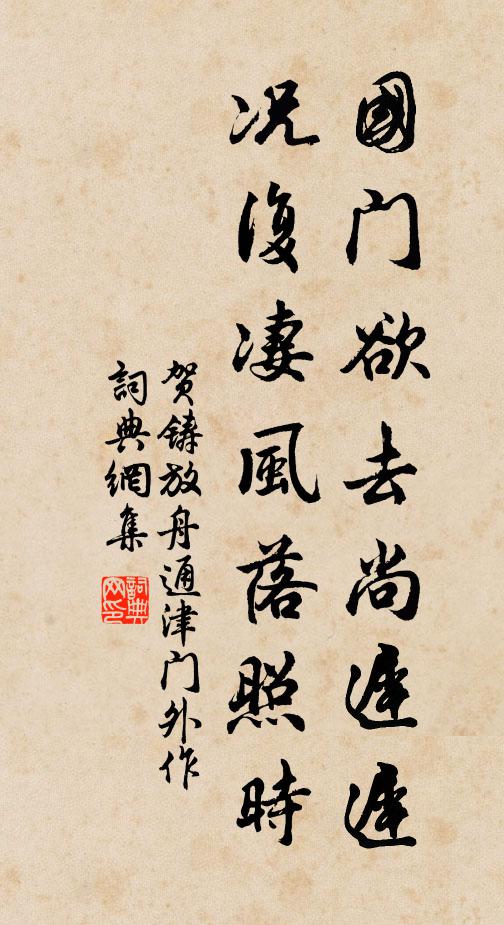 國门欲去尚遲遲
况復凄風落照時
贺鋳放舟通津门外作
詞典網集
詞典
网印